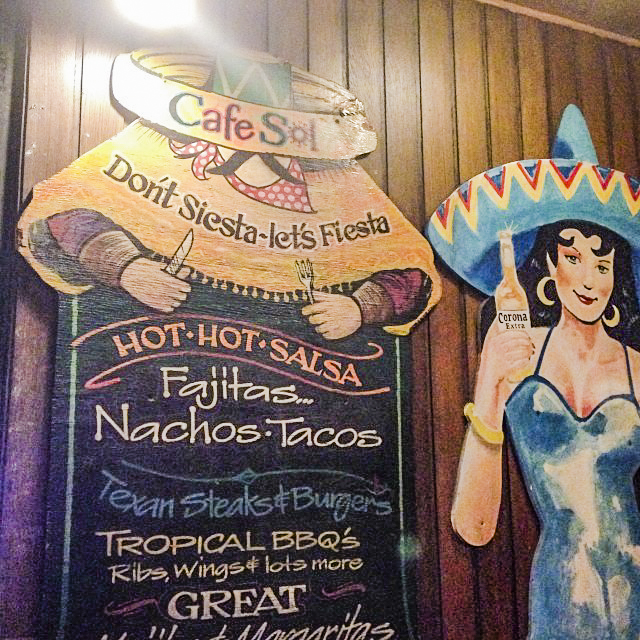 Cafe Sol
Don't Siesta-let's Fiesta
HOT·HOT·SALSA
Fajitas...
Nachos·Tacos
Texan Steaks & Burgers
TROPICAL BBQ's
Ribs, Wings & lots more
GREAT
Margaritas
Corona
Extra